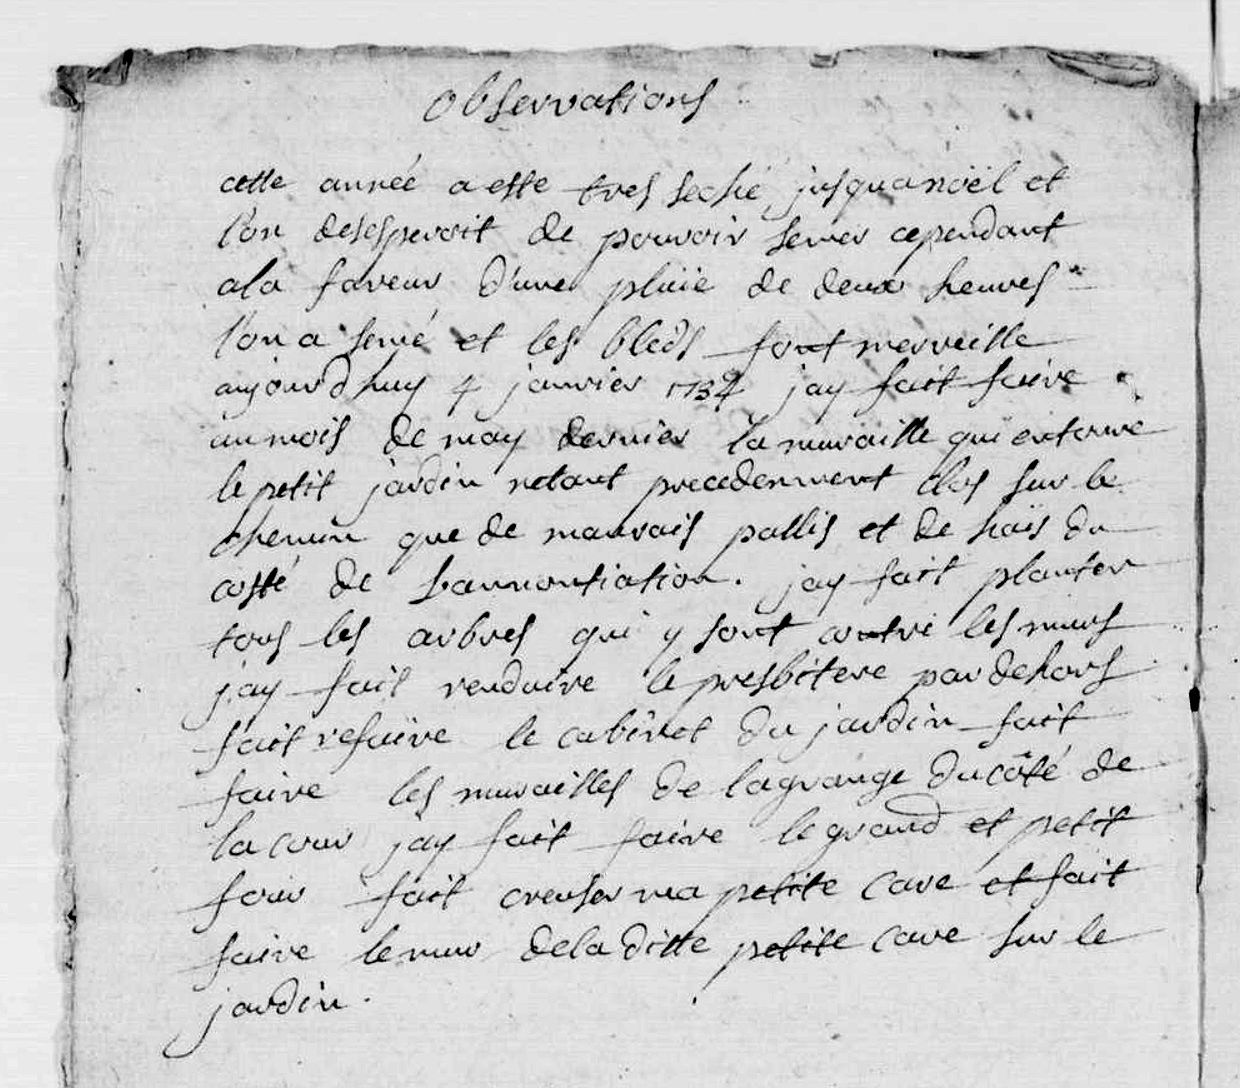 observations
cette année a esté tres seché jusqua noël et
l'on desesperoit de pouvoir semer cependant
ala faveur d'une pluie de deux heures
l'on a semé et les bleds font merveille
aujourdhuy 4 janvier 1734 jay fait faire
au mois de may dernier la muraille qui entoure
le petit jardin netant precedemment clos sur le
chemin que de mauvais pallis et de haïs du
costé de Lannontiation. jay fait planter
tous les arbres qui y sont contre les murs
jay fait renduire le presbitere par dehors
fait refaire le cabinet du jardin fait
faire les murailles de lagrange du côté de
la cour jay fait faire le grand et petit
four fait creuser ma petite cave et fait
faire le mur dela ditte petite cave sur le
jardin.